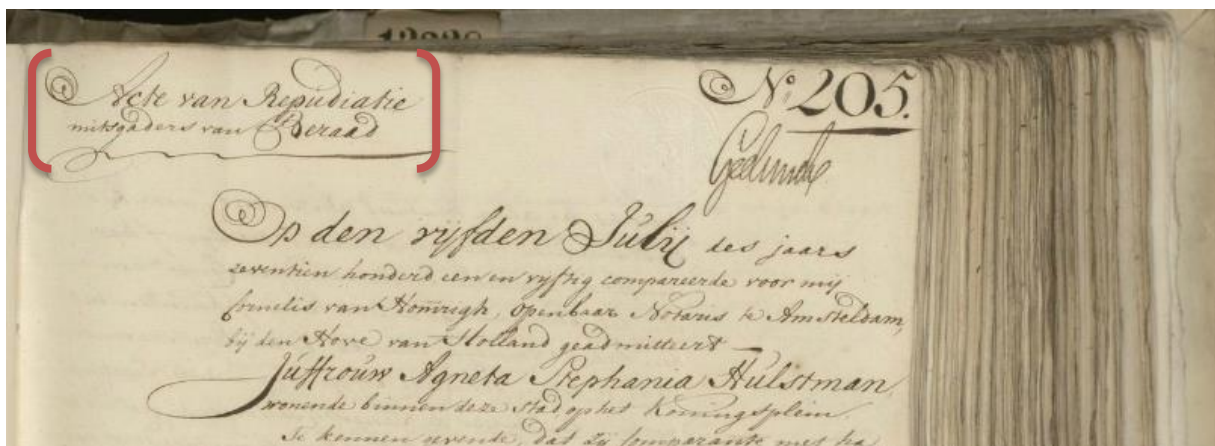 12330
Acte van Repudiatie
mitsgaders van Beraad
No: 205.
Op den vyfden Julij des jaars
zeventien honderd een en vyftig compareerde voor mij
Cornelis van Homrigh, Openbaar Notaris te Amsteldam,
bij den Hove van Holland geadmitteert
Juffrouw Agneta Stephania Hulstman,
wonende binnen deze Stad, op het Koningsplein.
Te kennen gevende, dat zij Comparante met ha